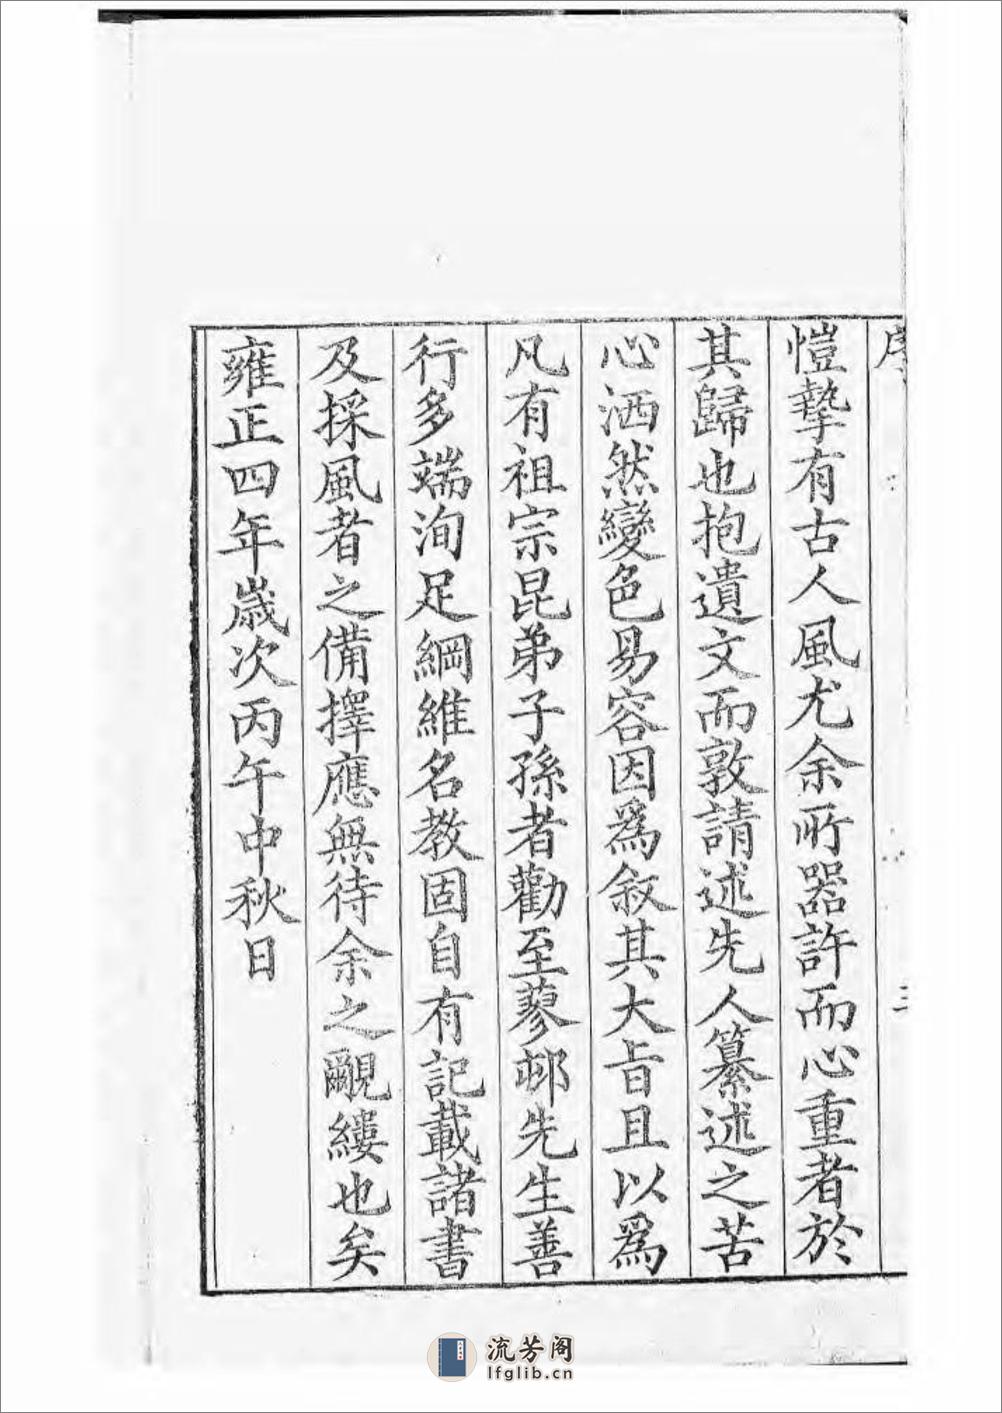 序
三
愷摯有古人風尤余所器許而心重者於
其歸也抱遺文而敦請述先人纂述之苦
心洒然變色易容因爲叙其大旨且以爲
凡有祖宗昆弟子孫者勸至蓼邨先生善
行多端洵足綱維名教固自有記載諸書
及採風者之備擇應無待余之覼縷也矣
雍正四年歲次丙午中秋日
流芳阁
lfglib.cn